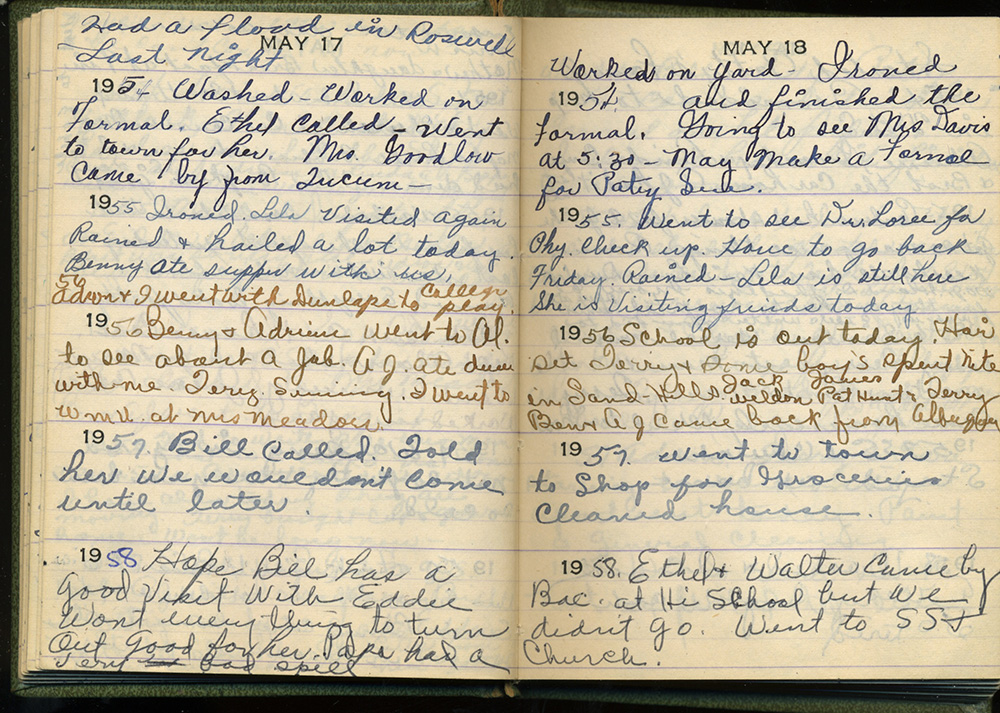 Had a flood in Roswell
MAY 17
Last night
1954 Washed - Worked on
Formal. Ethel called - Went
to town for her. Mrs. Goodlow
Came by from Tucum -
1955 Ironed. Lela Visited again
Rained & hailed a lot today.
Benny ate supper with us.
56
& I went with Dunlaps to College
play.
1956 Benny & Adrienne went to Al.
to see about a Job. A J. ate dinner
with me. Terry. Swimming. I went to
W.M.U. at Mrs Meadows.
1957. Bill Called. Told
her we wouldn't Come
until later.
1958 Hope Bill has a
Good Visit With Eddie
Want every thing to turn
Out Good for her. Papa had a
Very bad spell
MAY 18
Worked on yard - Ironed
1954 and finished the
Formal. Going to see Mrs Davis
at 5:30 - May Make a Formal
for Patsy Sue.
1955. Went to see Dr. Loree for
Phy. Check up. Have to go back
Friday. Rained - Lela is still here
She is Visiting friends today
1956 School is out today. Hair
Set Terry & Some boy's spent Nite
in Sand-Hills Jack James
Weldon Pat Hunt & Terry
Ben & A J Came back from
1957. Went to town
to Shop for Groceries
Cleaned house.
1958. Ethel & Walter Came by
Bac. at Hi School but we
didn't go. Went to SS &
Church.